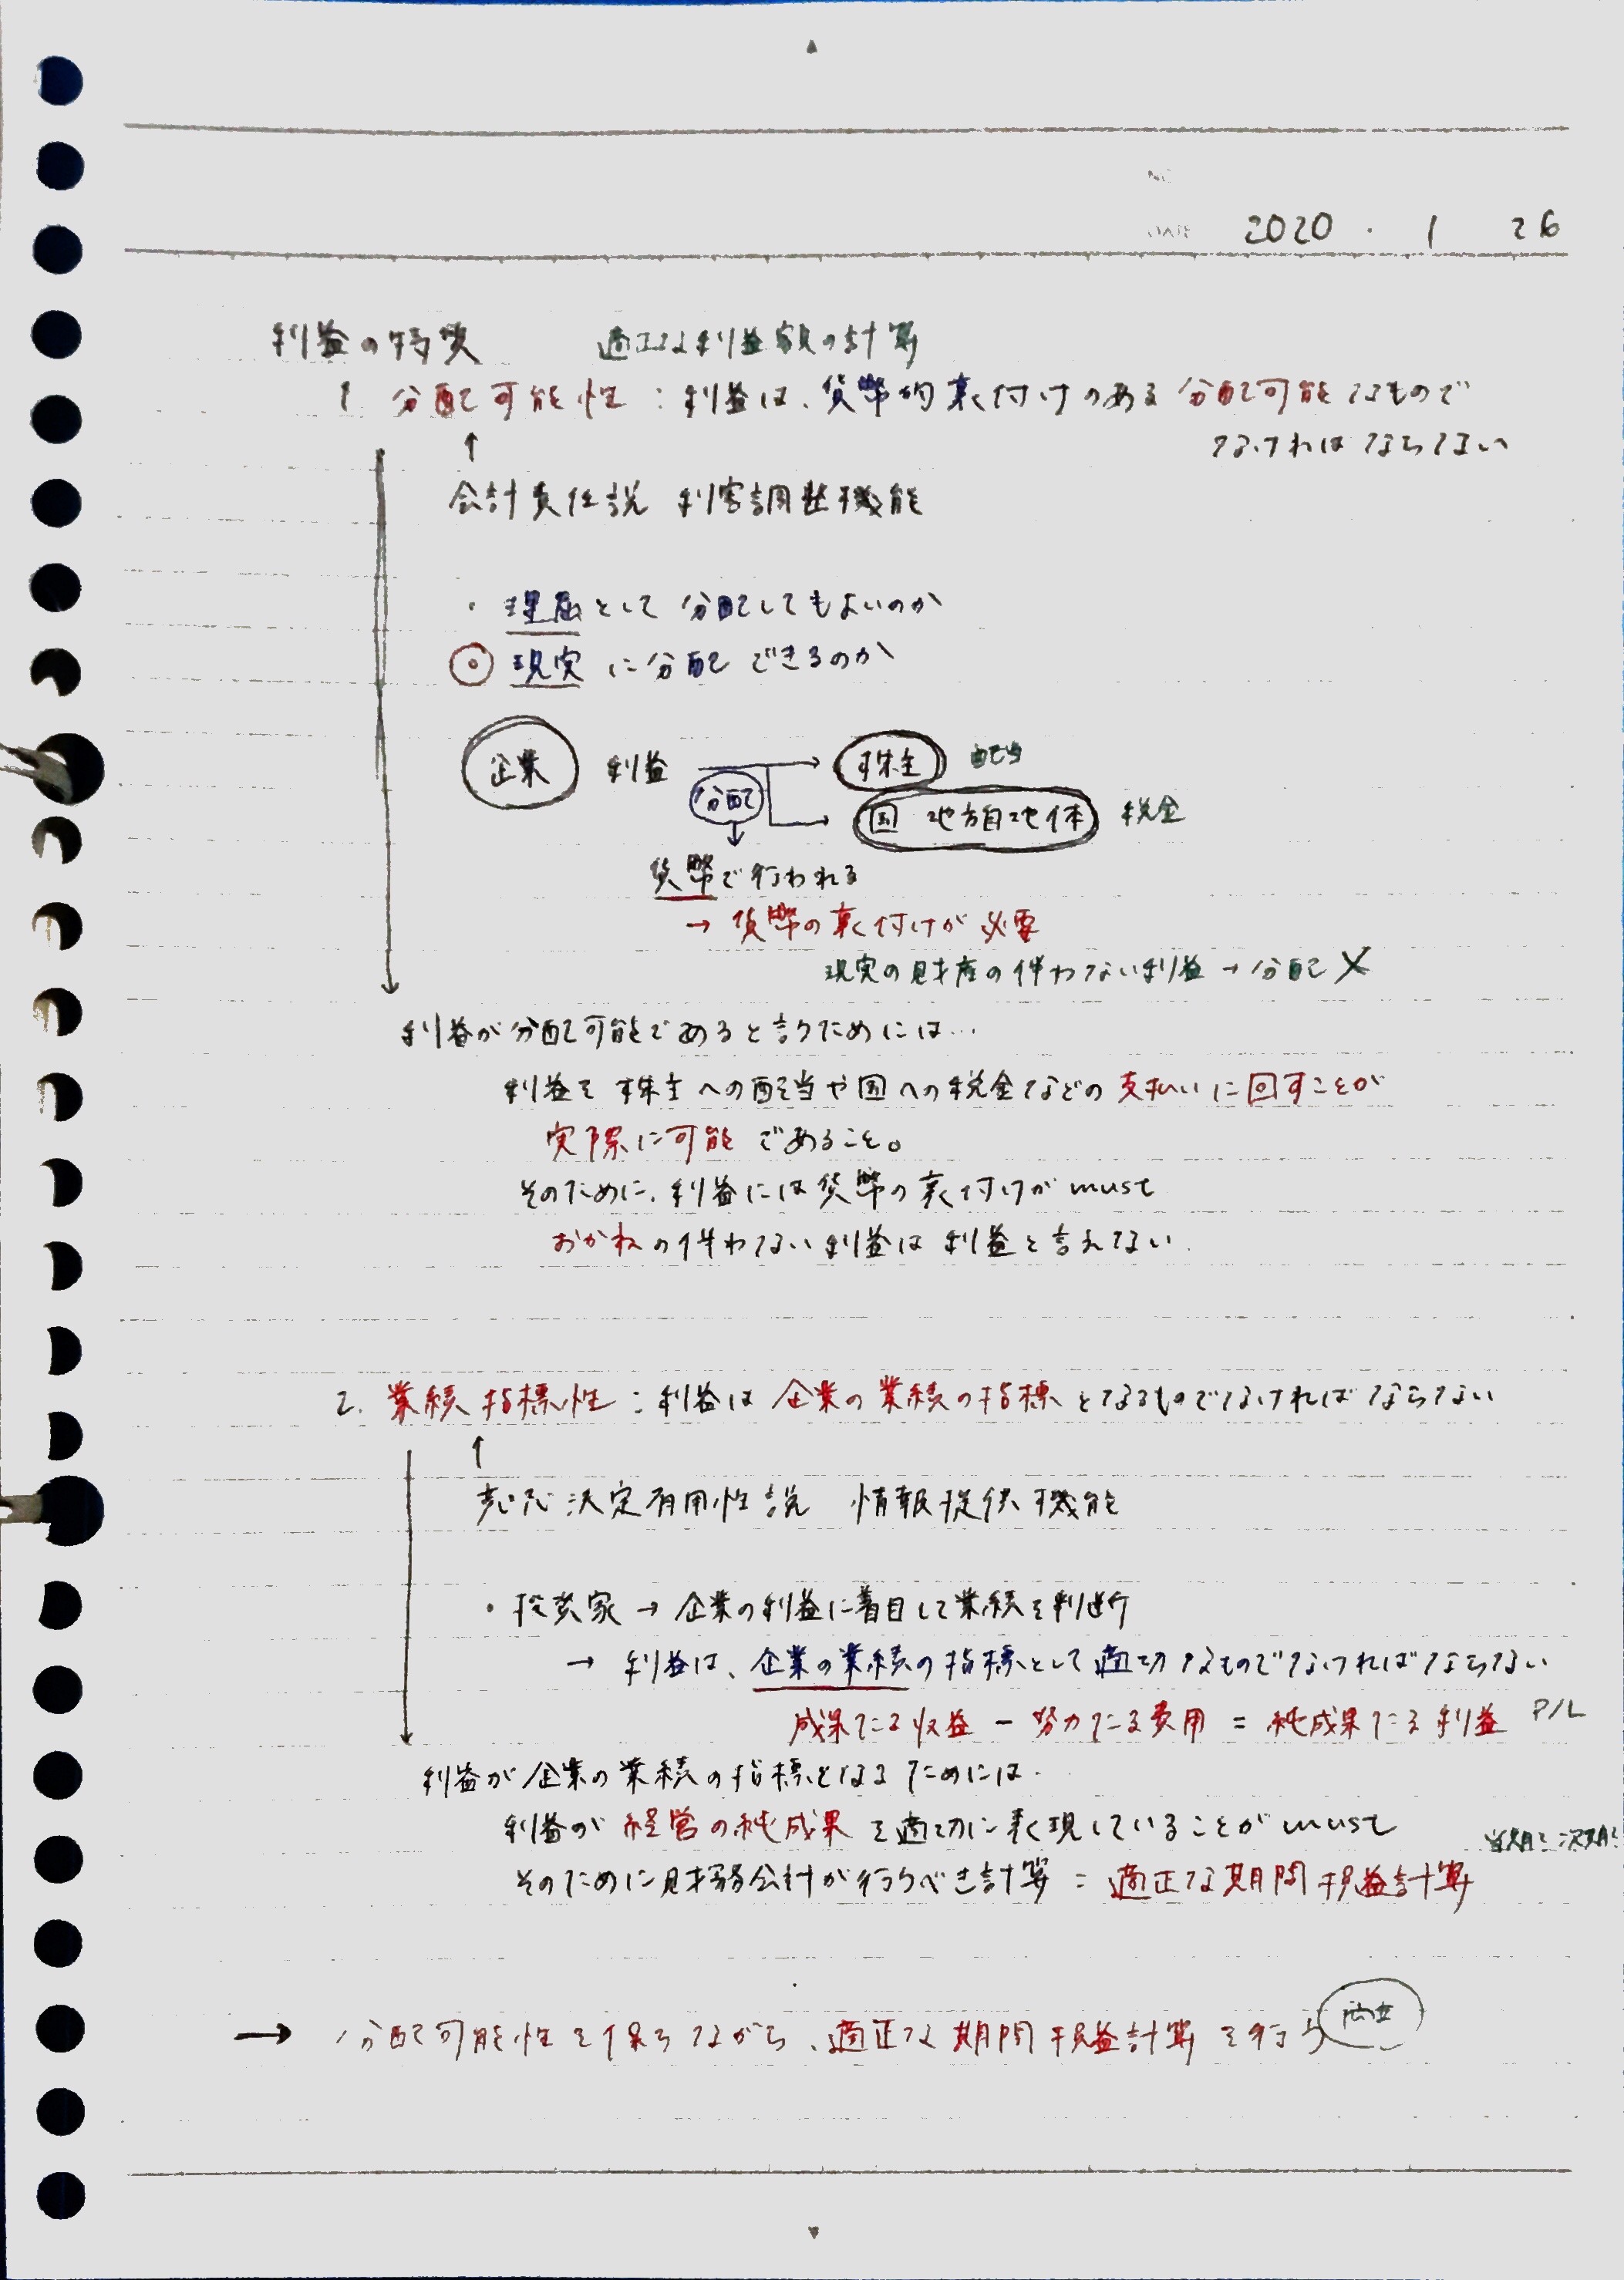 NO.
DATE 2020 . 1 26
利益の特質 適正な利益額の計算
1 分配可能性：利益は、貨幣的裏付けのある分配可能なもので
なければならない
↑
会計責任説 利害調整機能
・理屈として分配してもよいのか
⊙ 現実に分配できるのか
企業 利益 → 株主 配当
分配 → 国 地方自地体 税金
↓
貨幣で行われる
→ 貨幣の裏付けが必要
現実の財産の伴わない利益→分配✕
利益が分配可能であると言うためには…
利益を株主への配当や国への税金などの支払いに回すことが
実際に可能であること。
そのために、利益には貨幣の裏付けがmust
おかねの伴わない利益は利益と言えない.
2. 業績指標性：利益は企業の業績の指標となるものでなければならない
↑
意思決定有用性説 情報提供機能
・投資家→企業の利益に着目して業績を判断
→ 利益は、企業の業績の指標として適切なものでなければならない
成果たる収益 − 努力たる費用 = 純成果たる利益 P/L
利益が企業の業績の指標となるためには.
利益が経営の純成果を適切に表現していることがmust
当期と次期と
そのために財務会計が行うべき計算 = 適正な期間損益計算
→ 分配可能性を保ちながら、適正な期間損益計算を行う 両立